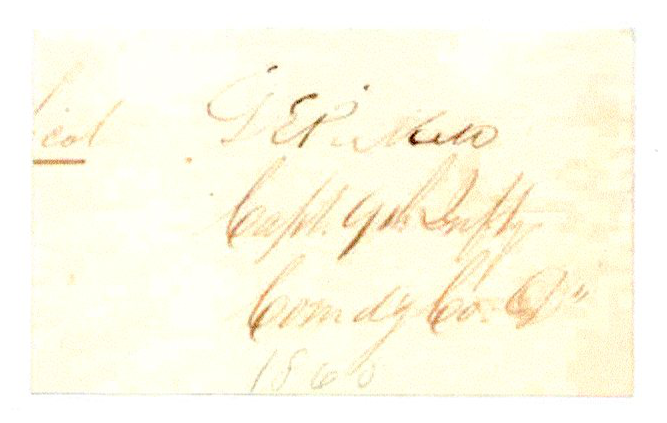 G E Pickett
Capt. 9th Infty
Comdg Co. "D"
1860